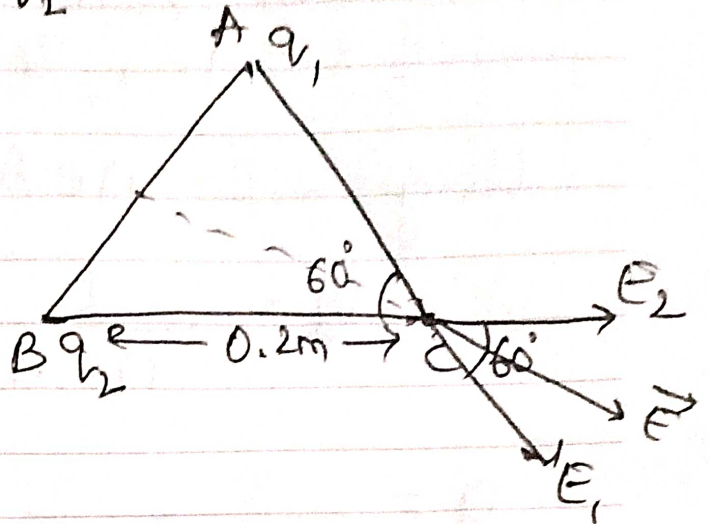 A q₁
60°
E₂
B q₂ ← 0.2m → C 60°
E⃗
E₁